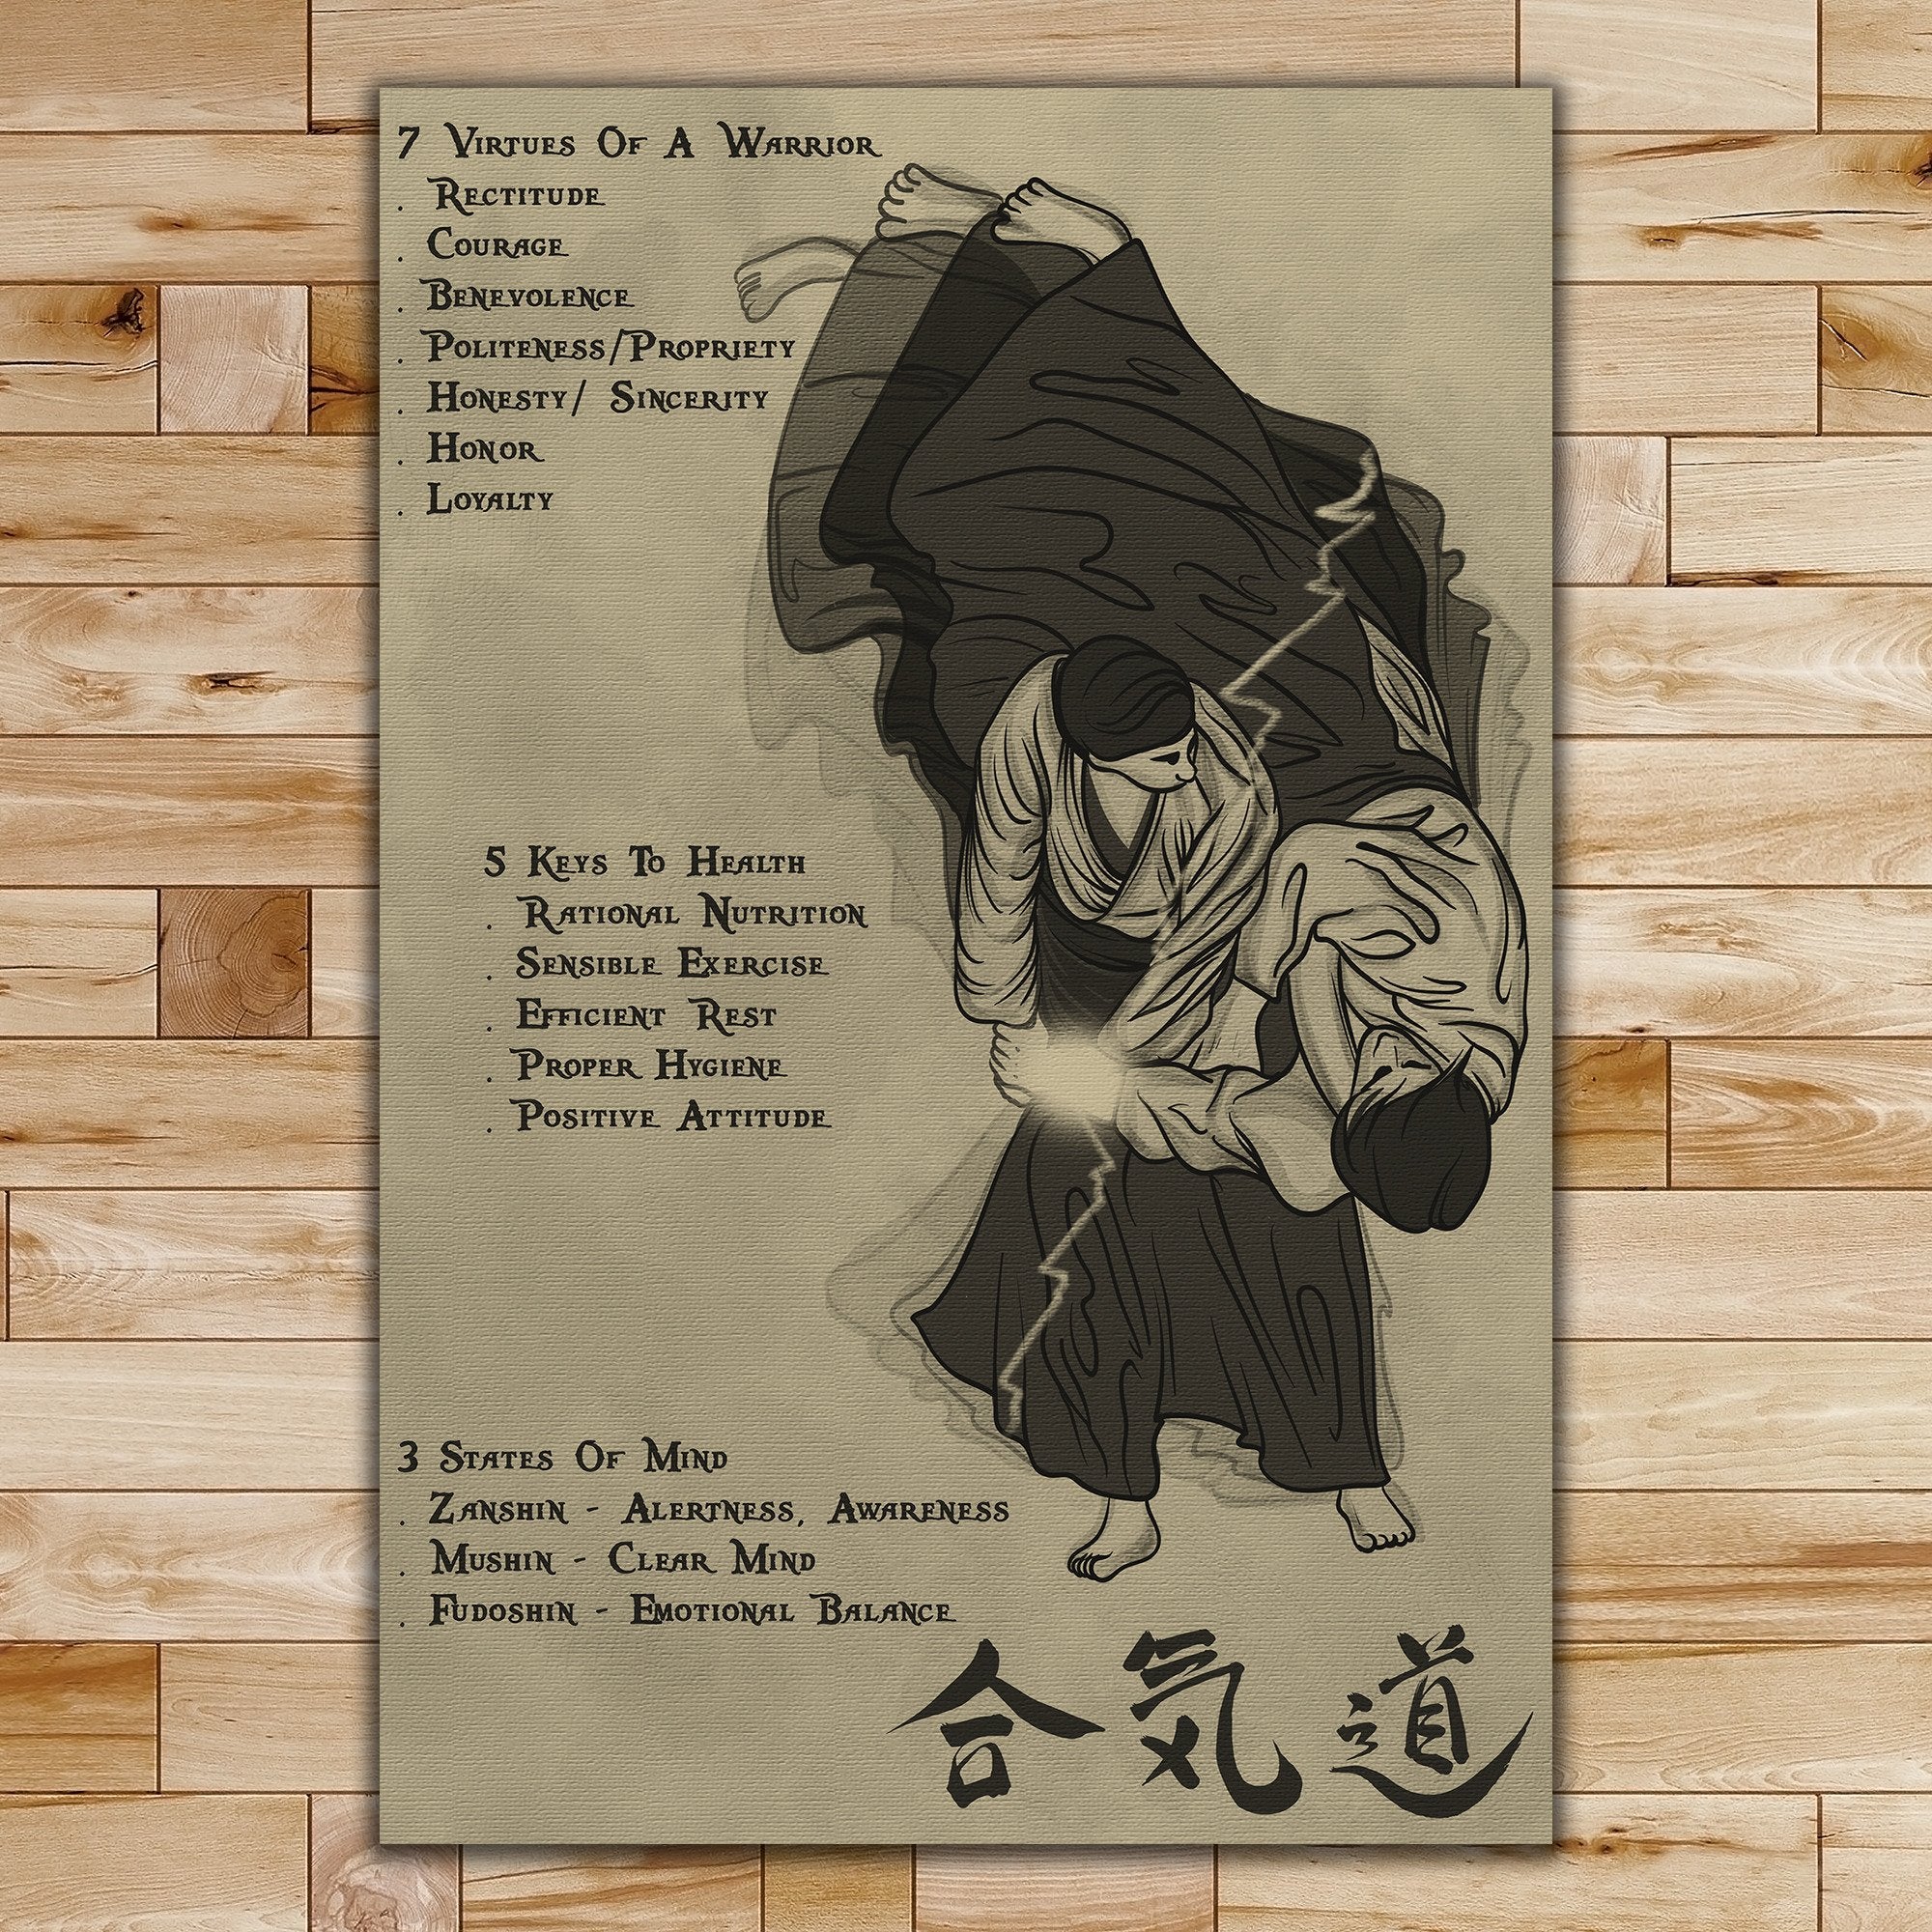 7 Virtues Of A Warrior
. Rectitude
. Courage
. Benevolence
. Politeness/Propriety
. Honesty/ Sincerity
. Honor
. Loyalty
5 Keys To Health
. Rational Nutrition
. Sensible Exercise
. Efficient Rest
. Proper Hygiene
. Positive Attitude
3 States Of Mind
. Zanshin - Alertness, Awareness
. Mushin - Clear Mind
. Fudoshin - Emotional Balance
合気道